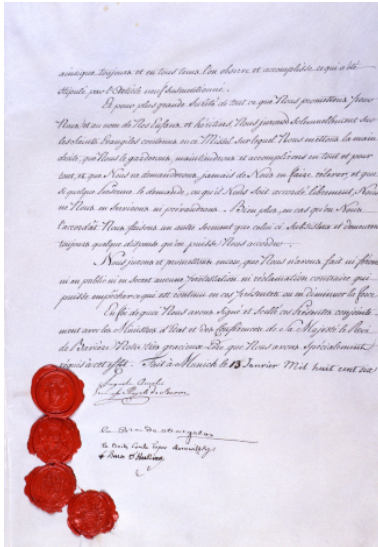 ainsi que toujours et en tous tems l'on observe et accomplisse ce qui a été
stipulé par l'Article neuf susmentionné.
Et pour plus grande Sureté de tout ce que Nous promettons pour
Nous, et au nom de Nos Enfans, et héritiers, Nous jurons Solemnellement Sur
les Saints Evangiles contenus en ce Missel Sur lequel Nous mettons la main
droite, que Nous le garderons, maintiendrons et accomplirons en tout et pour
tout, et que Nous ne demanderons jamais de Nous en faire relever, et que
Si quelque personne le demande, ou qu'il Nous Soit accordé librement, Nous
ne Nous en Servirons ni prévaudrons. Bien plus, en cas qu'on Nous
l'accordât Nous faisons un autre Serment que celui ci Subsistera et demeurera
toujours quelque dispense qu'on puisse Nous accorder.
Nous jurons et promettons encore, que Nous n'avons fait ni ferons
ni en public ni en Secret aucune protestation ni réclamation contraire qui
puisse empêcher ce qui est contenu en ces présentes ou en diminuer la force
En foi de quoi Nous avons Signé et Scellé ces présentes conjointe
ment avec les Ministres d'Etat et des Conférences de Sa Majesté le Roi
de Bavière Notre très gracieux Père que Nous avons Spécialement
requis à cet effet. Fait à Munich le 13 Janvier Mil huit cent six
Auguste Amelie
le Baron de
le Comte
Baron